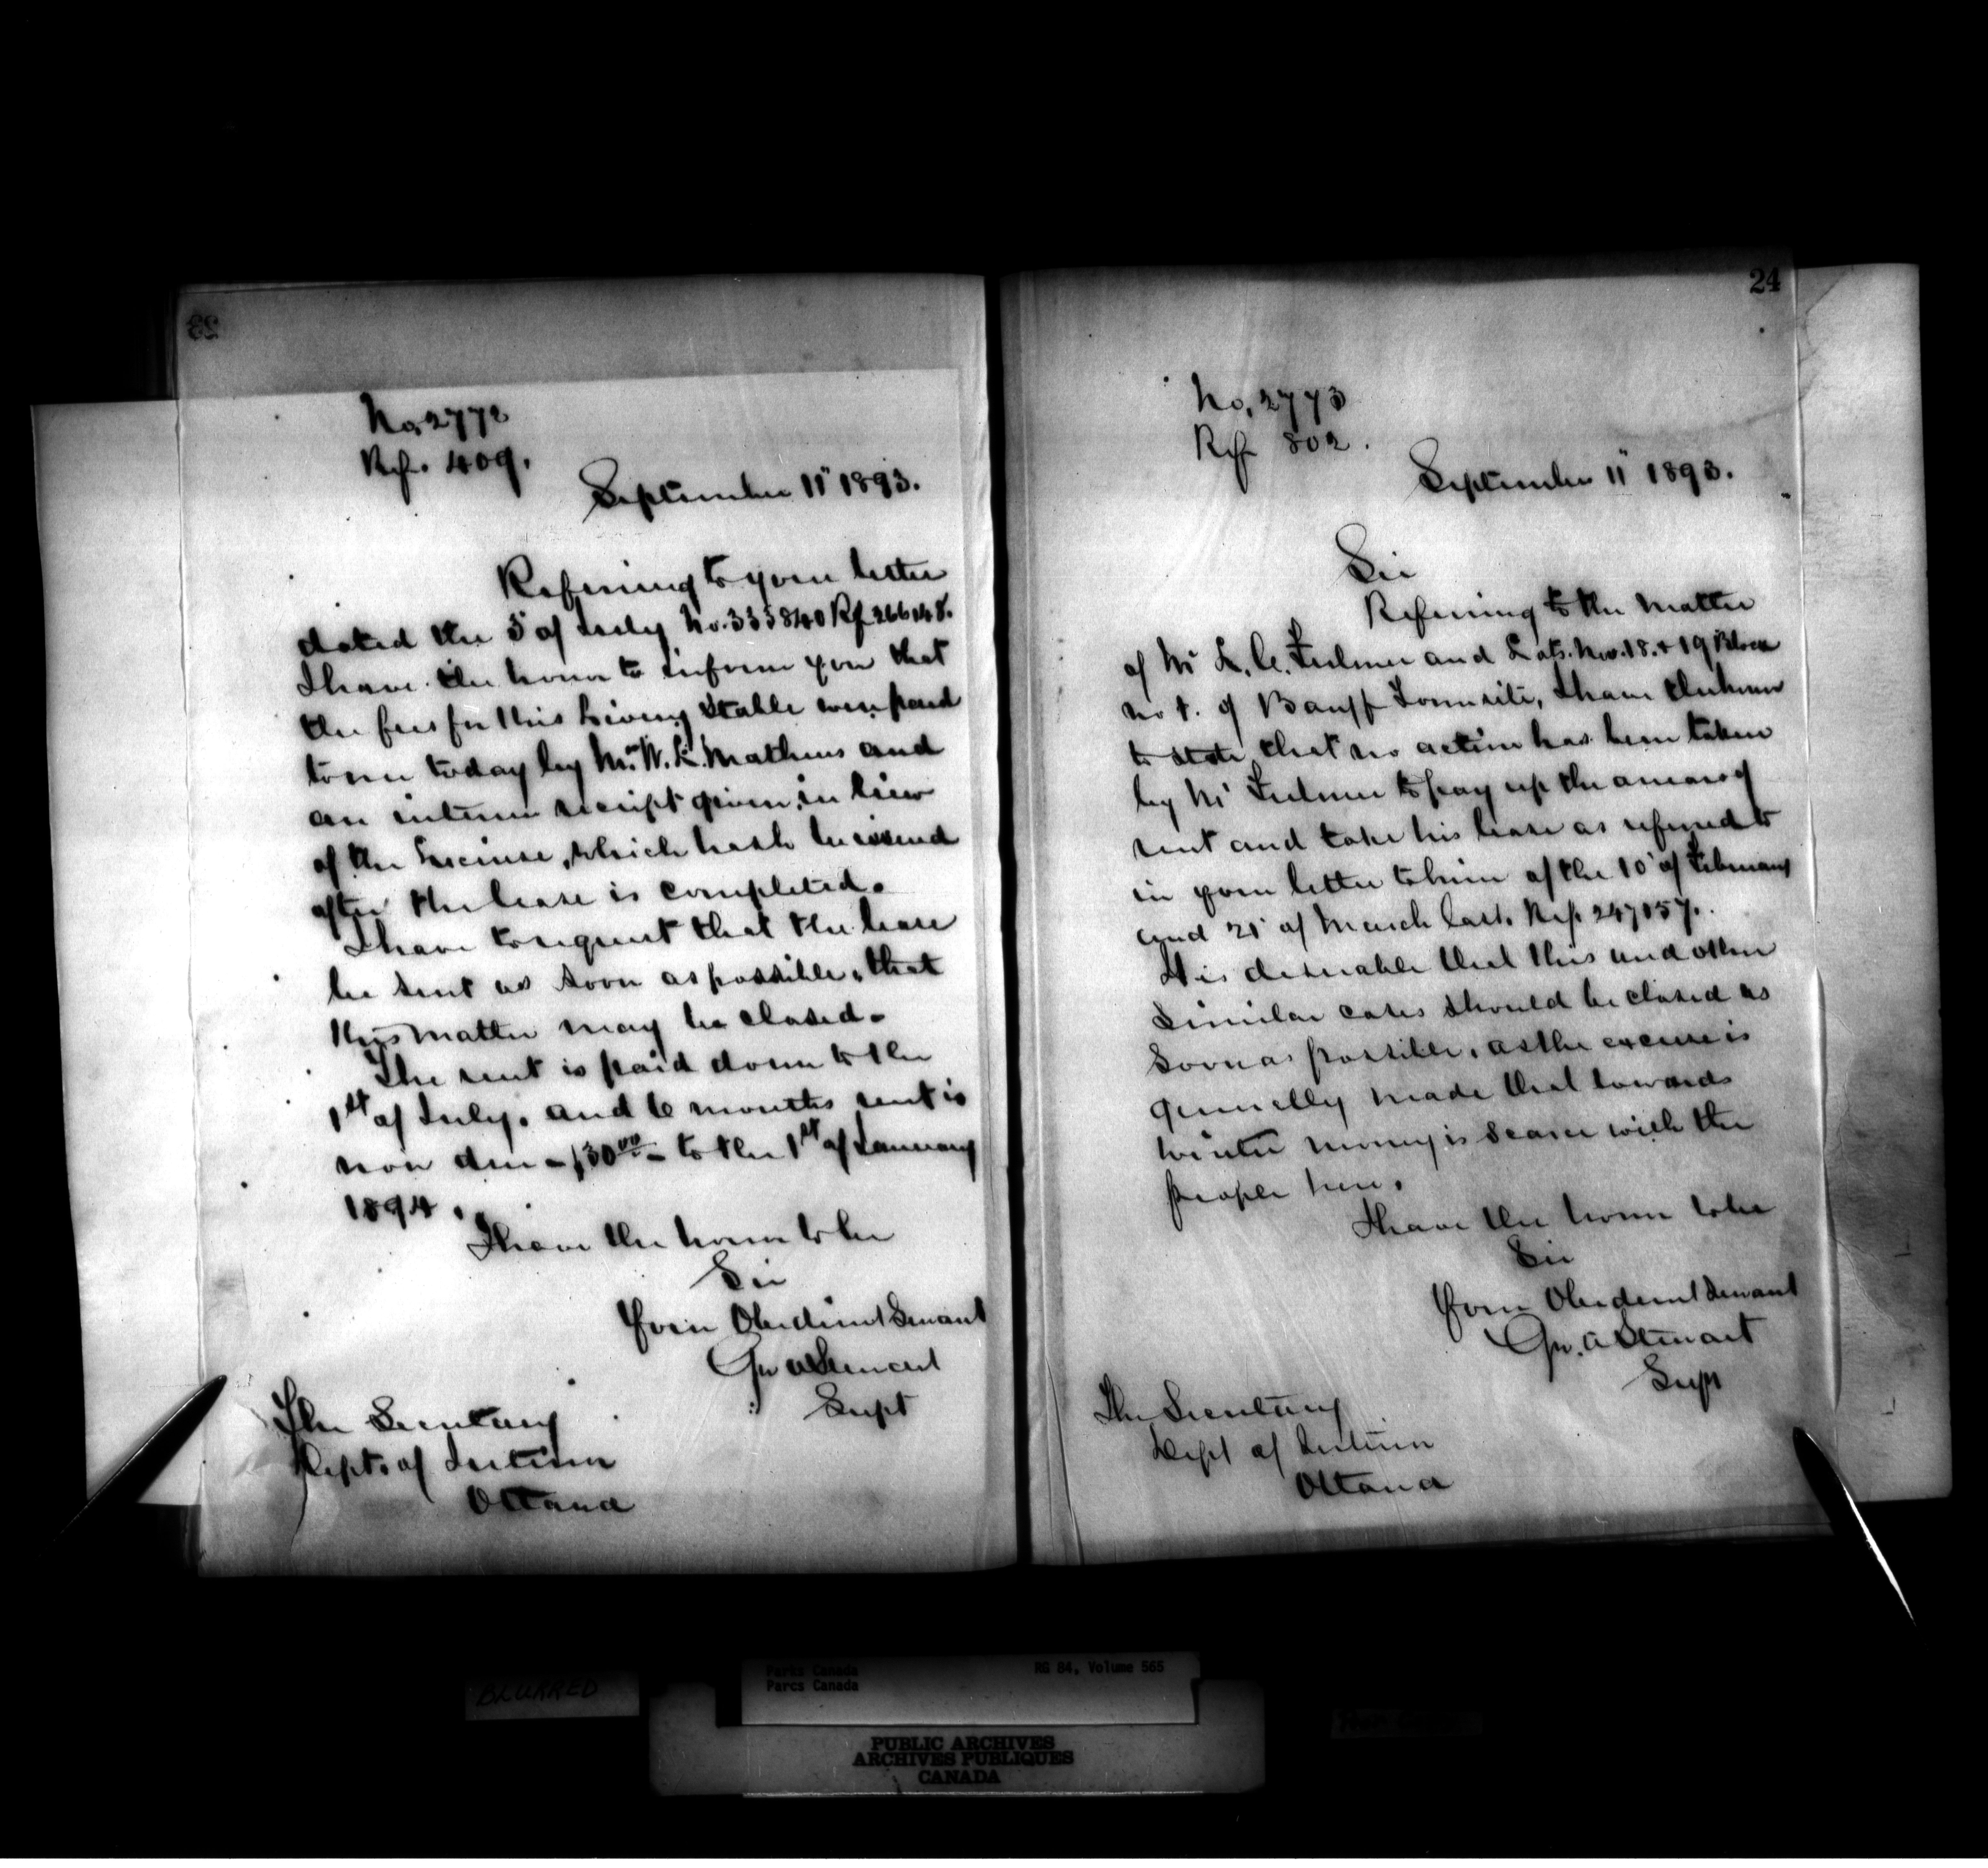 23
No. 2772
Ref. 409.
September 11" 1893.
Referring to your letter
dated the 5' of July No. 335840 Rf 266148.
I have the honor to inform you that
the fees for this Livery Stable were paid
to me today by Mr. W. L. Mathews and
an interim receipt given, in lieu
of the License, which has to be issued
after the lease is completed.
I have to request that the lease
be sent as soon as possible, that
this matter may be closed.
The rent is paid down to the
1st of July. and 6 months rent is
now due - $30.00 - to the 1st of January
1894.
I have the honor to be
Sir
Your Obedient Servant
Geo. A Stewart
Supt
The Secretary
Dept. of Interior
Ottawa
24
No. 2773
Ref 802.
September 11" 1893.
Sir
Referring to the matter
of Mr and Lots. Nos. 18. & 19 Block
No of Banff Townsite, I have the honor
to state that no action has been taken
by Mr to pay up the arrears of
rent and take his lease as referred to
in your letter to him of the 10' of February
and 21' of March last. Ref. 247057.
It is desirable that this and other
similar cases should be closed as
soon as possible, as the excuse is
generally made that towards
winter money is scarce with the
people here.
I have the honor to be
Sir
Your Obedient Servant
Geo. A Stewart
Supt
The Secretary
Dept of Interior
Ottawa
BLURRED
Parks Canada
Parcs Canada
RG 84, Volume 565
PUBLIC ARCHIVES
ARCHIVES PUBLIQUES
CANADA